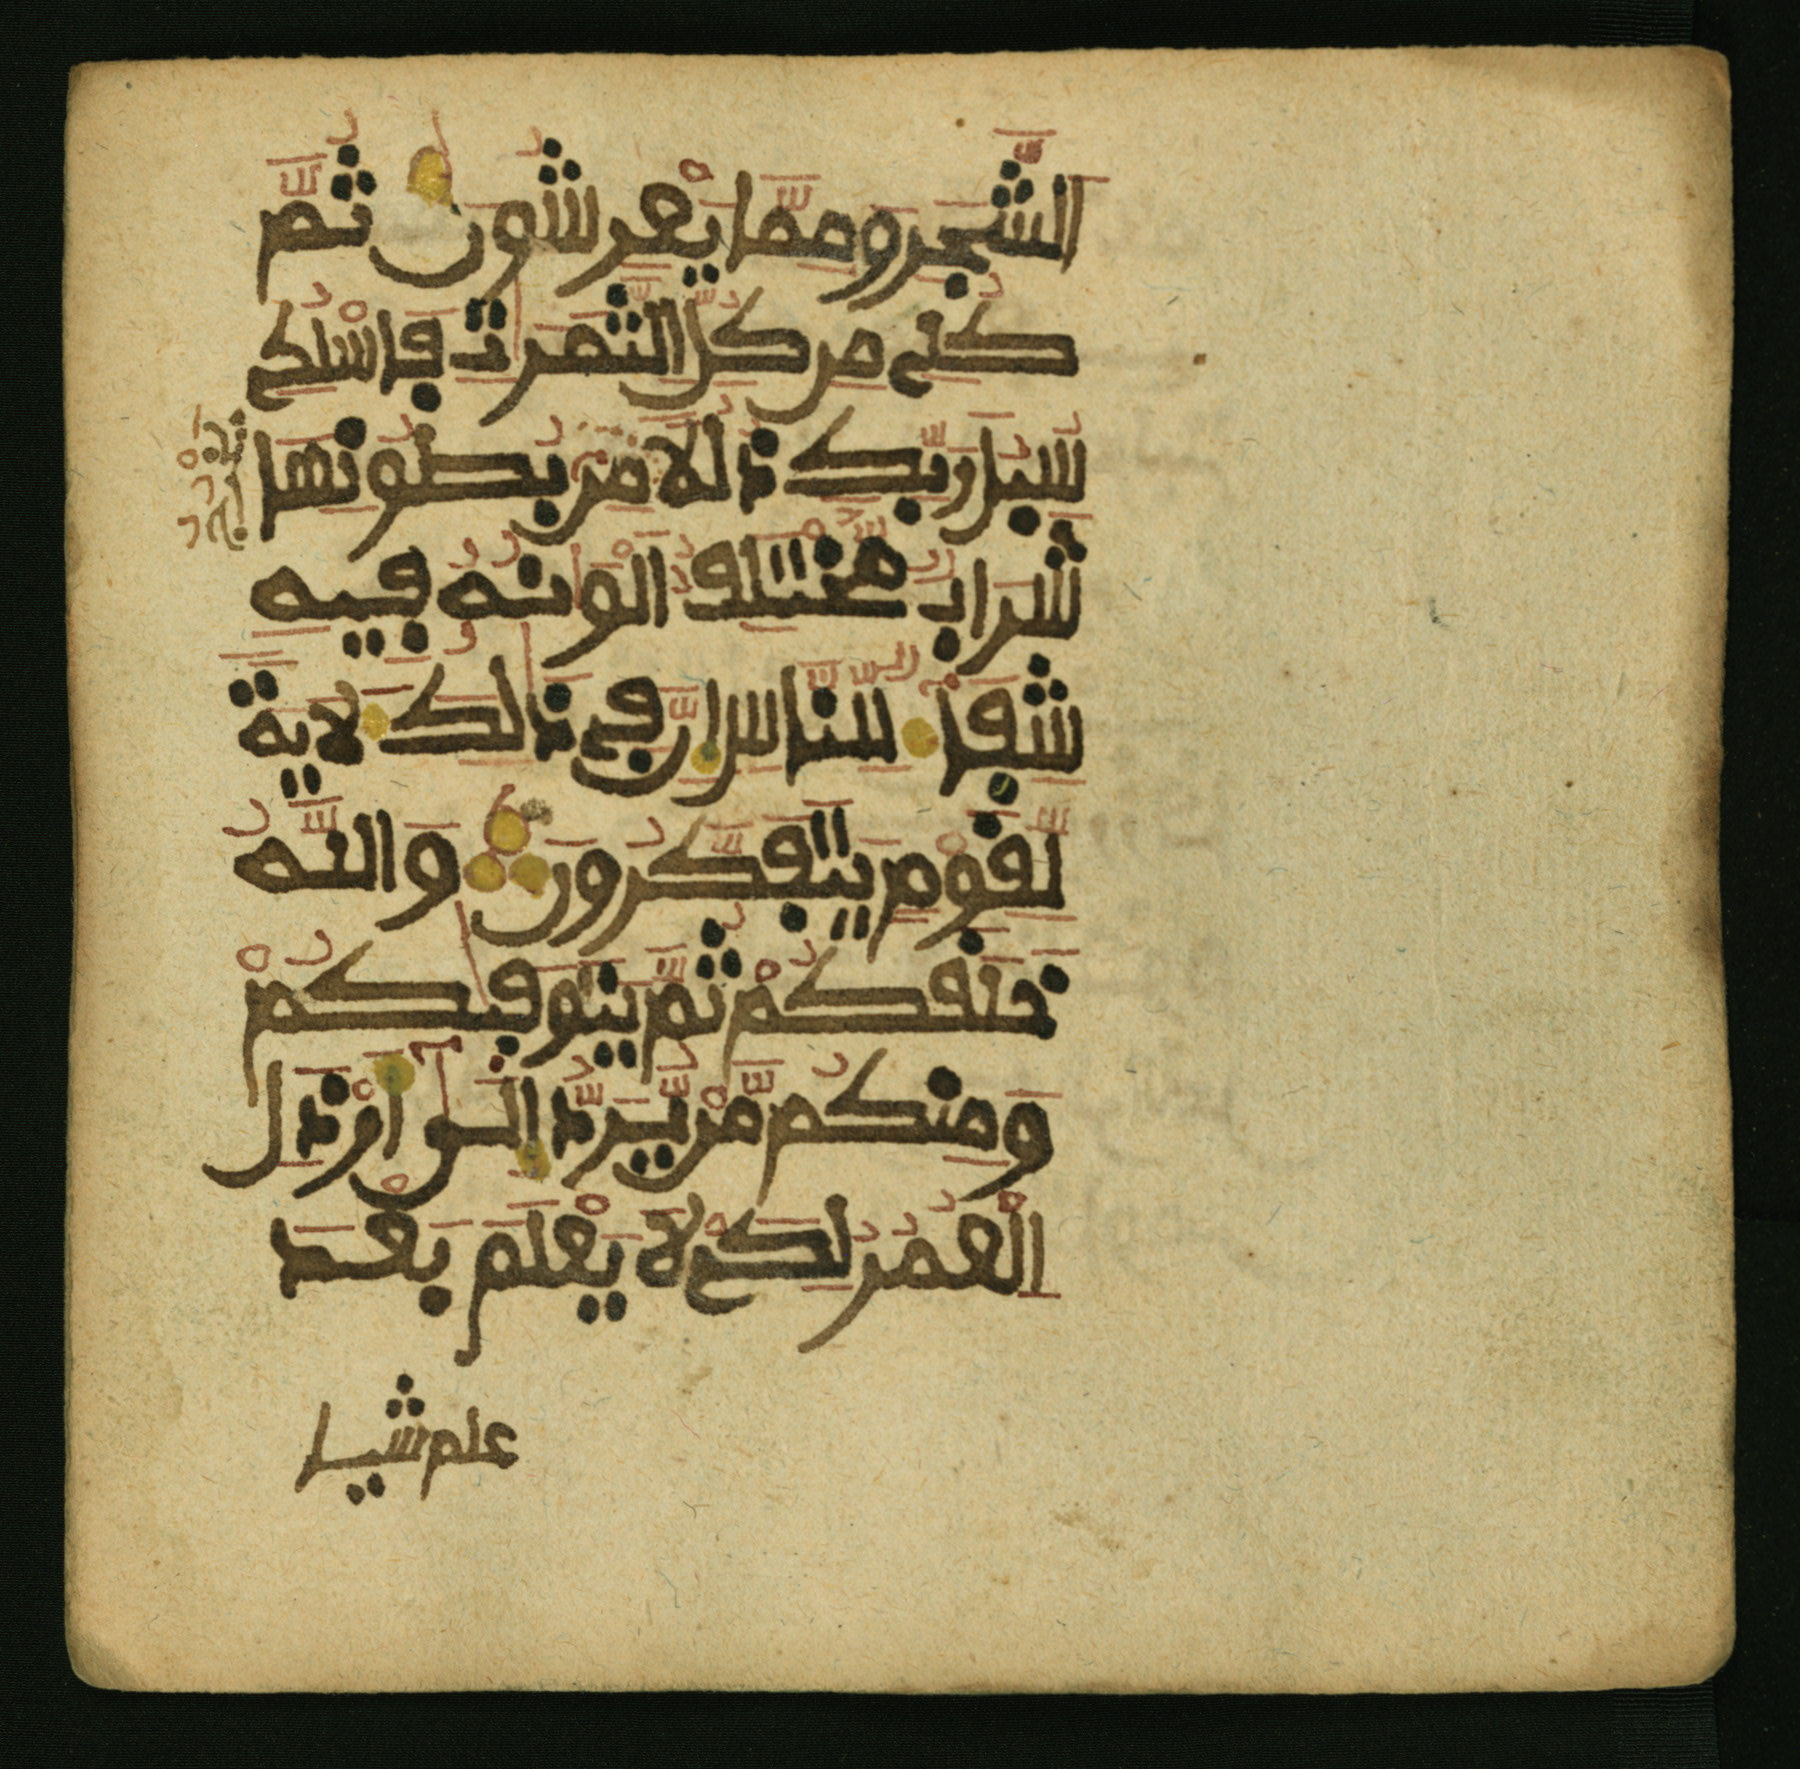 الشَّجَرِ وَمِمَّا يَعْرِشُونَ ثُمَّ
كُلِے مِن كُلِّ الثَّمَرَٰتِ فَاسْلُكِے
سُبُلَ رَبِّكِ ذُلُلا مِن بُطُونِهَا
يخرج
شَرَابٌ مُّخْتَلِفٌ اَلْوَٰنُهُۥ فِيهِ
شِفَآءٌ لِّلنَّاسِ إِنَّ فِے ذَٰلِكَ لَأَيَةً
لِّقَوْمٍ يَتَفَكَّرُونَ وَاللَّهُ
خَلَقَكُمْ ثُمَّ يَتَوَفَّيٰكُمْ
وَمِنكُم مَّنْ يُّرَدُّ إِلَيٰٓ أَرْذَلِ
الْعُمُرِ لِكَےْ لَا يَعْلَمَ بَعْدَ
علم شيا